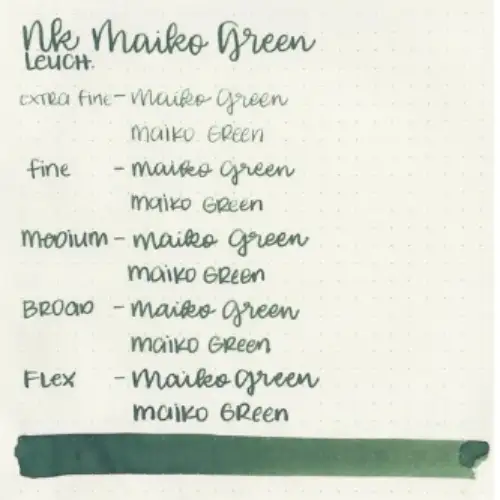 Nk Maiko Green
LEUCH.
EXTRA fine - Maiko Green
maiko GReen
fine - Maiko Green
maiko GReen
medium - Maiko Green
maiko GReen
BROAD - Maiko Green
maiko GReen
FLex - Maiko Green
maiko GReen